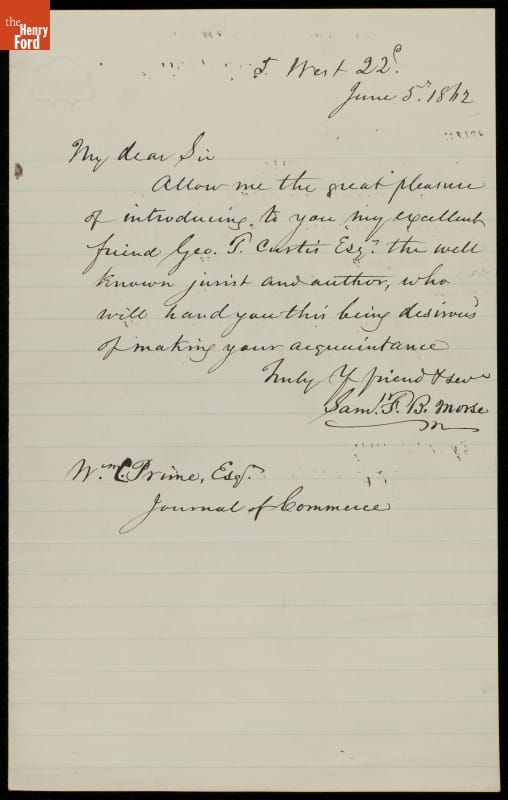 the
Henry
Ford
5 West 22d.
June 5. 1862
My dear Sir
Allow me the great pleasure
of introducing to you my excellent
friend Geo. T. Curtis Esqr. the well
known jurist and author, who
will hand you this being desirous
of making your acquaintance
Truly Yr friend & servt
Saml. F. B. Morse
Wm. C. Prime, Esqr.
Journal of Commerce